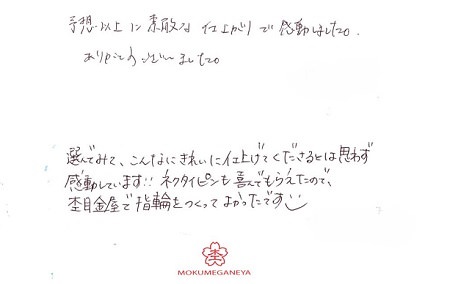 予想以上に素敵な仕上がりで感動しました。
ありがとうございました。
選んでみて、こんなにきれいに仕上げてくださるとは思わず
感動しています!! ネクタイピンも喜んでもらえたので、
杢目金屋で指輪をつくってよかったです
杢
MOKUMEGANEYA